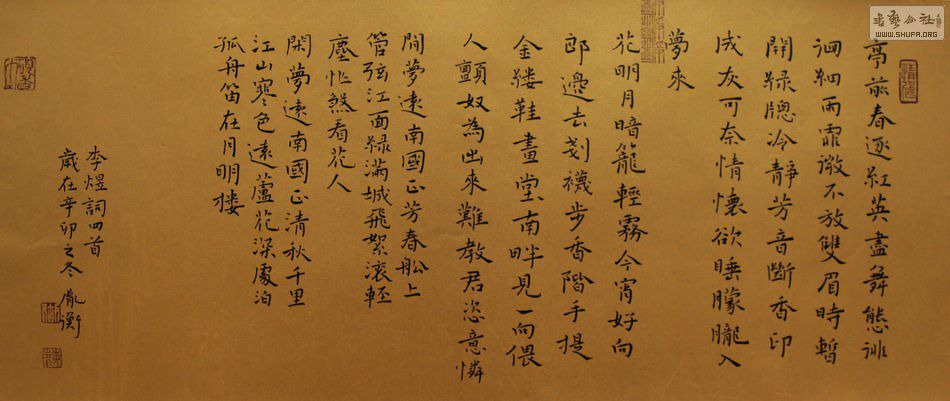 亭前春逐紅英盡舞態徘
徊細雨霏微不放雙眉時暫
開綠牕冷靜芳音斷香印
成灰可奈情懷欲睡朦朧入
夢來
花明月暗籠輕霧今宵好向
郎邊去剗襪步香階手提
金縷鞋畫堂南畔見一向偎
人顫奴為出來難教君恣意憐
閒夢遠南國正芳春船上
管弦江面綠滿城飛絮滾輕
塵忙煞看花人
閑夢遠南國正清秋千里
江山寒色遠蘆花深處泊
孤舟笛在月明樓
李煜詞四首
歲在辛卯之冬 胤衡
WWW.SHUFA.ORG